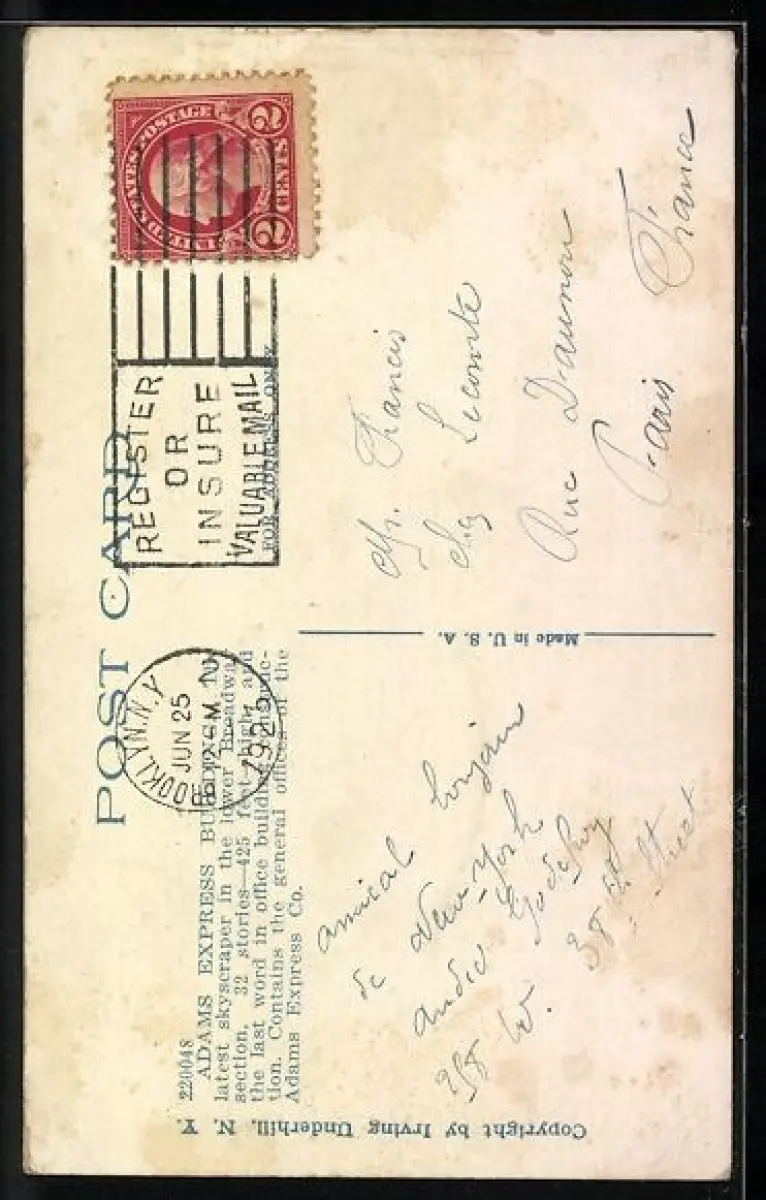 POST CARD
FOR ADDRESS ONLY
UNITED STATES POSTAGE
2 CENTS 2
REGISTER
OR
INSURE
VALUABLE MAIL
BROOKLYN, N.Y.
JUN 25
12 M
192
220048
ADAMS EXPRESS BUILDING, N.
latest skyscraper in the lower Broadway
section, 32 stories—425 feet high and
the last word in office building construc-
tion. Contains the general offices of the
Adams Express Co.
Copyright by Irving Underhill, N. Y.
Made in U. S. A.
amical bonjour
de New-York
André Godefroy
358 W. 38th Street
Mr. Francis
chez Lecomte
Rue Daumon
Paris France